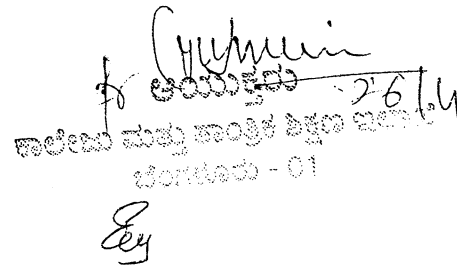 ಆಯುಕ್ತರು 26/4
ಕಾಲೇಜು ಮತ್ತು ತಾಂತ್ರಿಕ ಶಿಕ್ಷಣ ಇಲಾಖೆ
ಬೆಂಗಳೂರು - 01